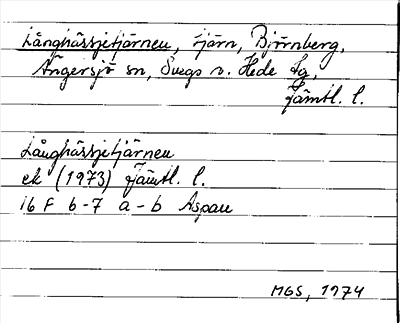 Långhåssjetjärnen, tjärn, Björnberg,
Ängersjö sn, Svegs o. Hede tg,
Jämtl. l.
Långhåssjetjärnen
ek (1973) Jämtl. l.
16 F 6-7 a-b Aspan
MGS, 1974